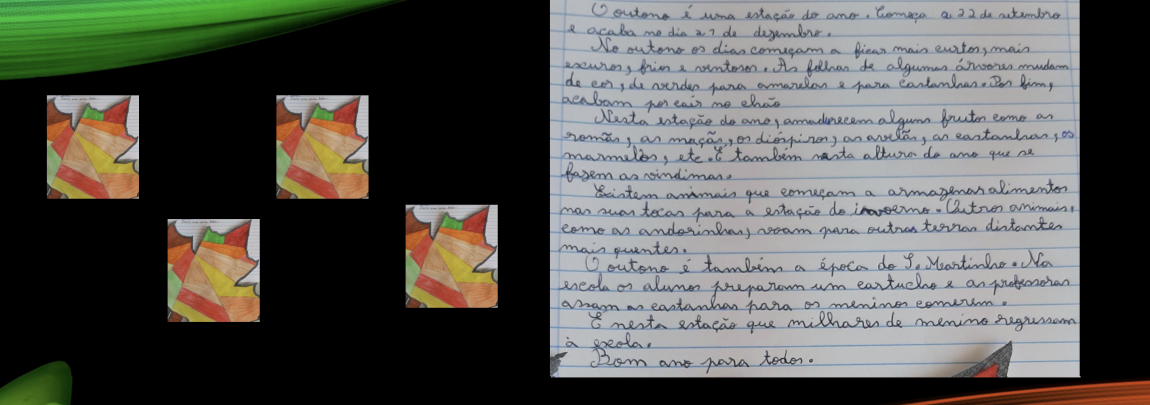 O outono é uma estação do ano. Começa a 22 de setembro
e acaba no dia 21 de dezembro.
No outono os dias começam a ficar mais curtos, mais
escuros, frios e ventosos. As folhas de algumas árvores mudam
de cor, de verdes para amarelas e para castanhas. Por fim,
acabam por cair no chão
Nesta estação do ano, amadurecem alguns frutos como as
romãs, as maçãs, os dióspiros, as avelãs, as castanhas, os
marmelos, etc. É também nesta altura do ano que se
fazem as vindimas.
Existem animais que começam a armazenar alimentos
nas suas tocas para a estação do inverno. Outros animais,
como as andorinhas, voam para outras terras distantes
mais quentes.
O outono é também a época do S. Martinho. Na
escola os alunos preparam um cartucho e as professoras
assam as castanhas para os meninos comerem.
É nesta estação que milhares de menino regressam
à escola.
Bom ano para todos.